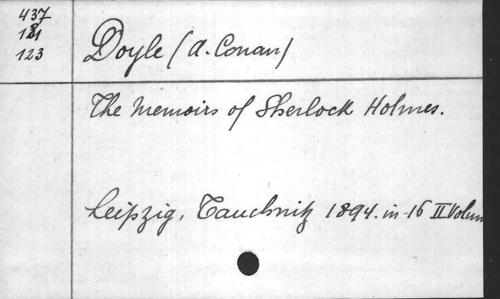 437
123
Doyle (A. Conan)
The Memoirs of Sherlock Holmes.
Leipzig, Tauchnitz 1894. in-16 II Volum